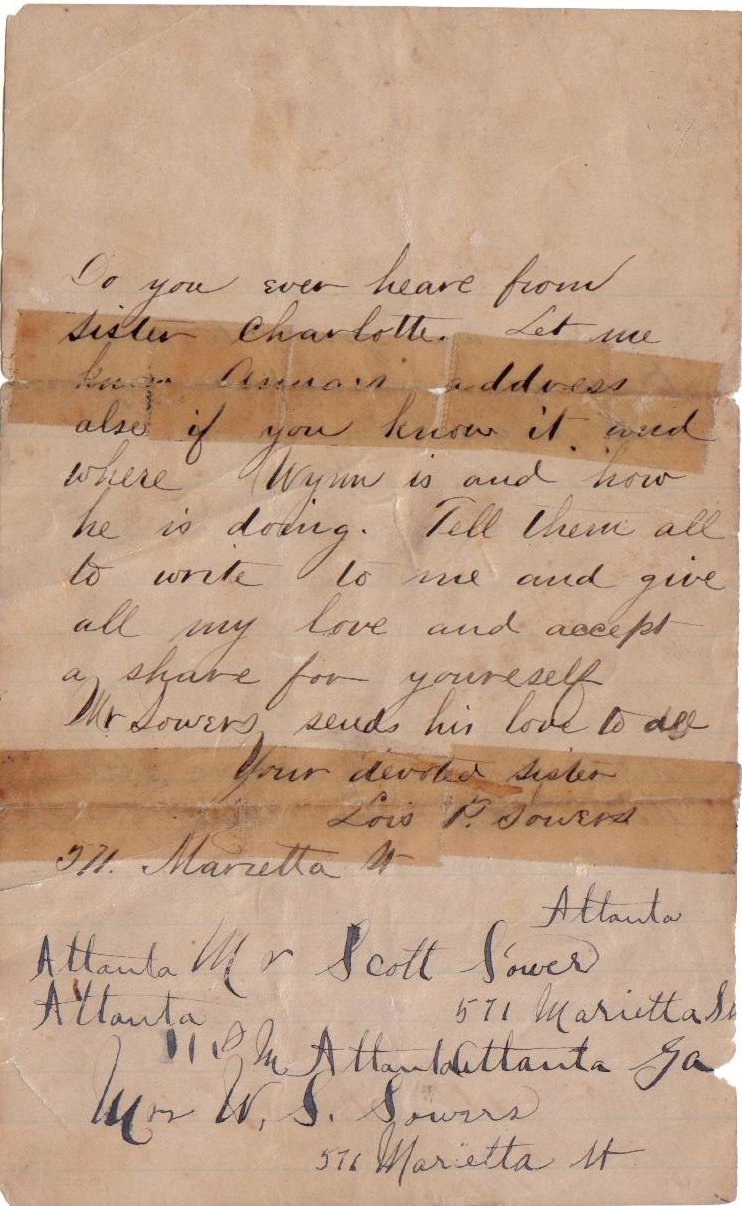 Do you ever heare from
sister Charlotte. Let me
know Anna's address
also if you know it and
where Wynn is and how
he is doing. Tell them all
to write to me and give
all my love and accept
a share for youreself
Mr Sowers sends his love to all
Your devoted sister
Lois P. Sowers
571. Marietta St
Atlanta
Atlanta Mr Scott Sower
Atlanta 571 Marietta St
M Atlanta Atlanta Ga
Mrs W. S. Sowers
571 Marietta St